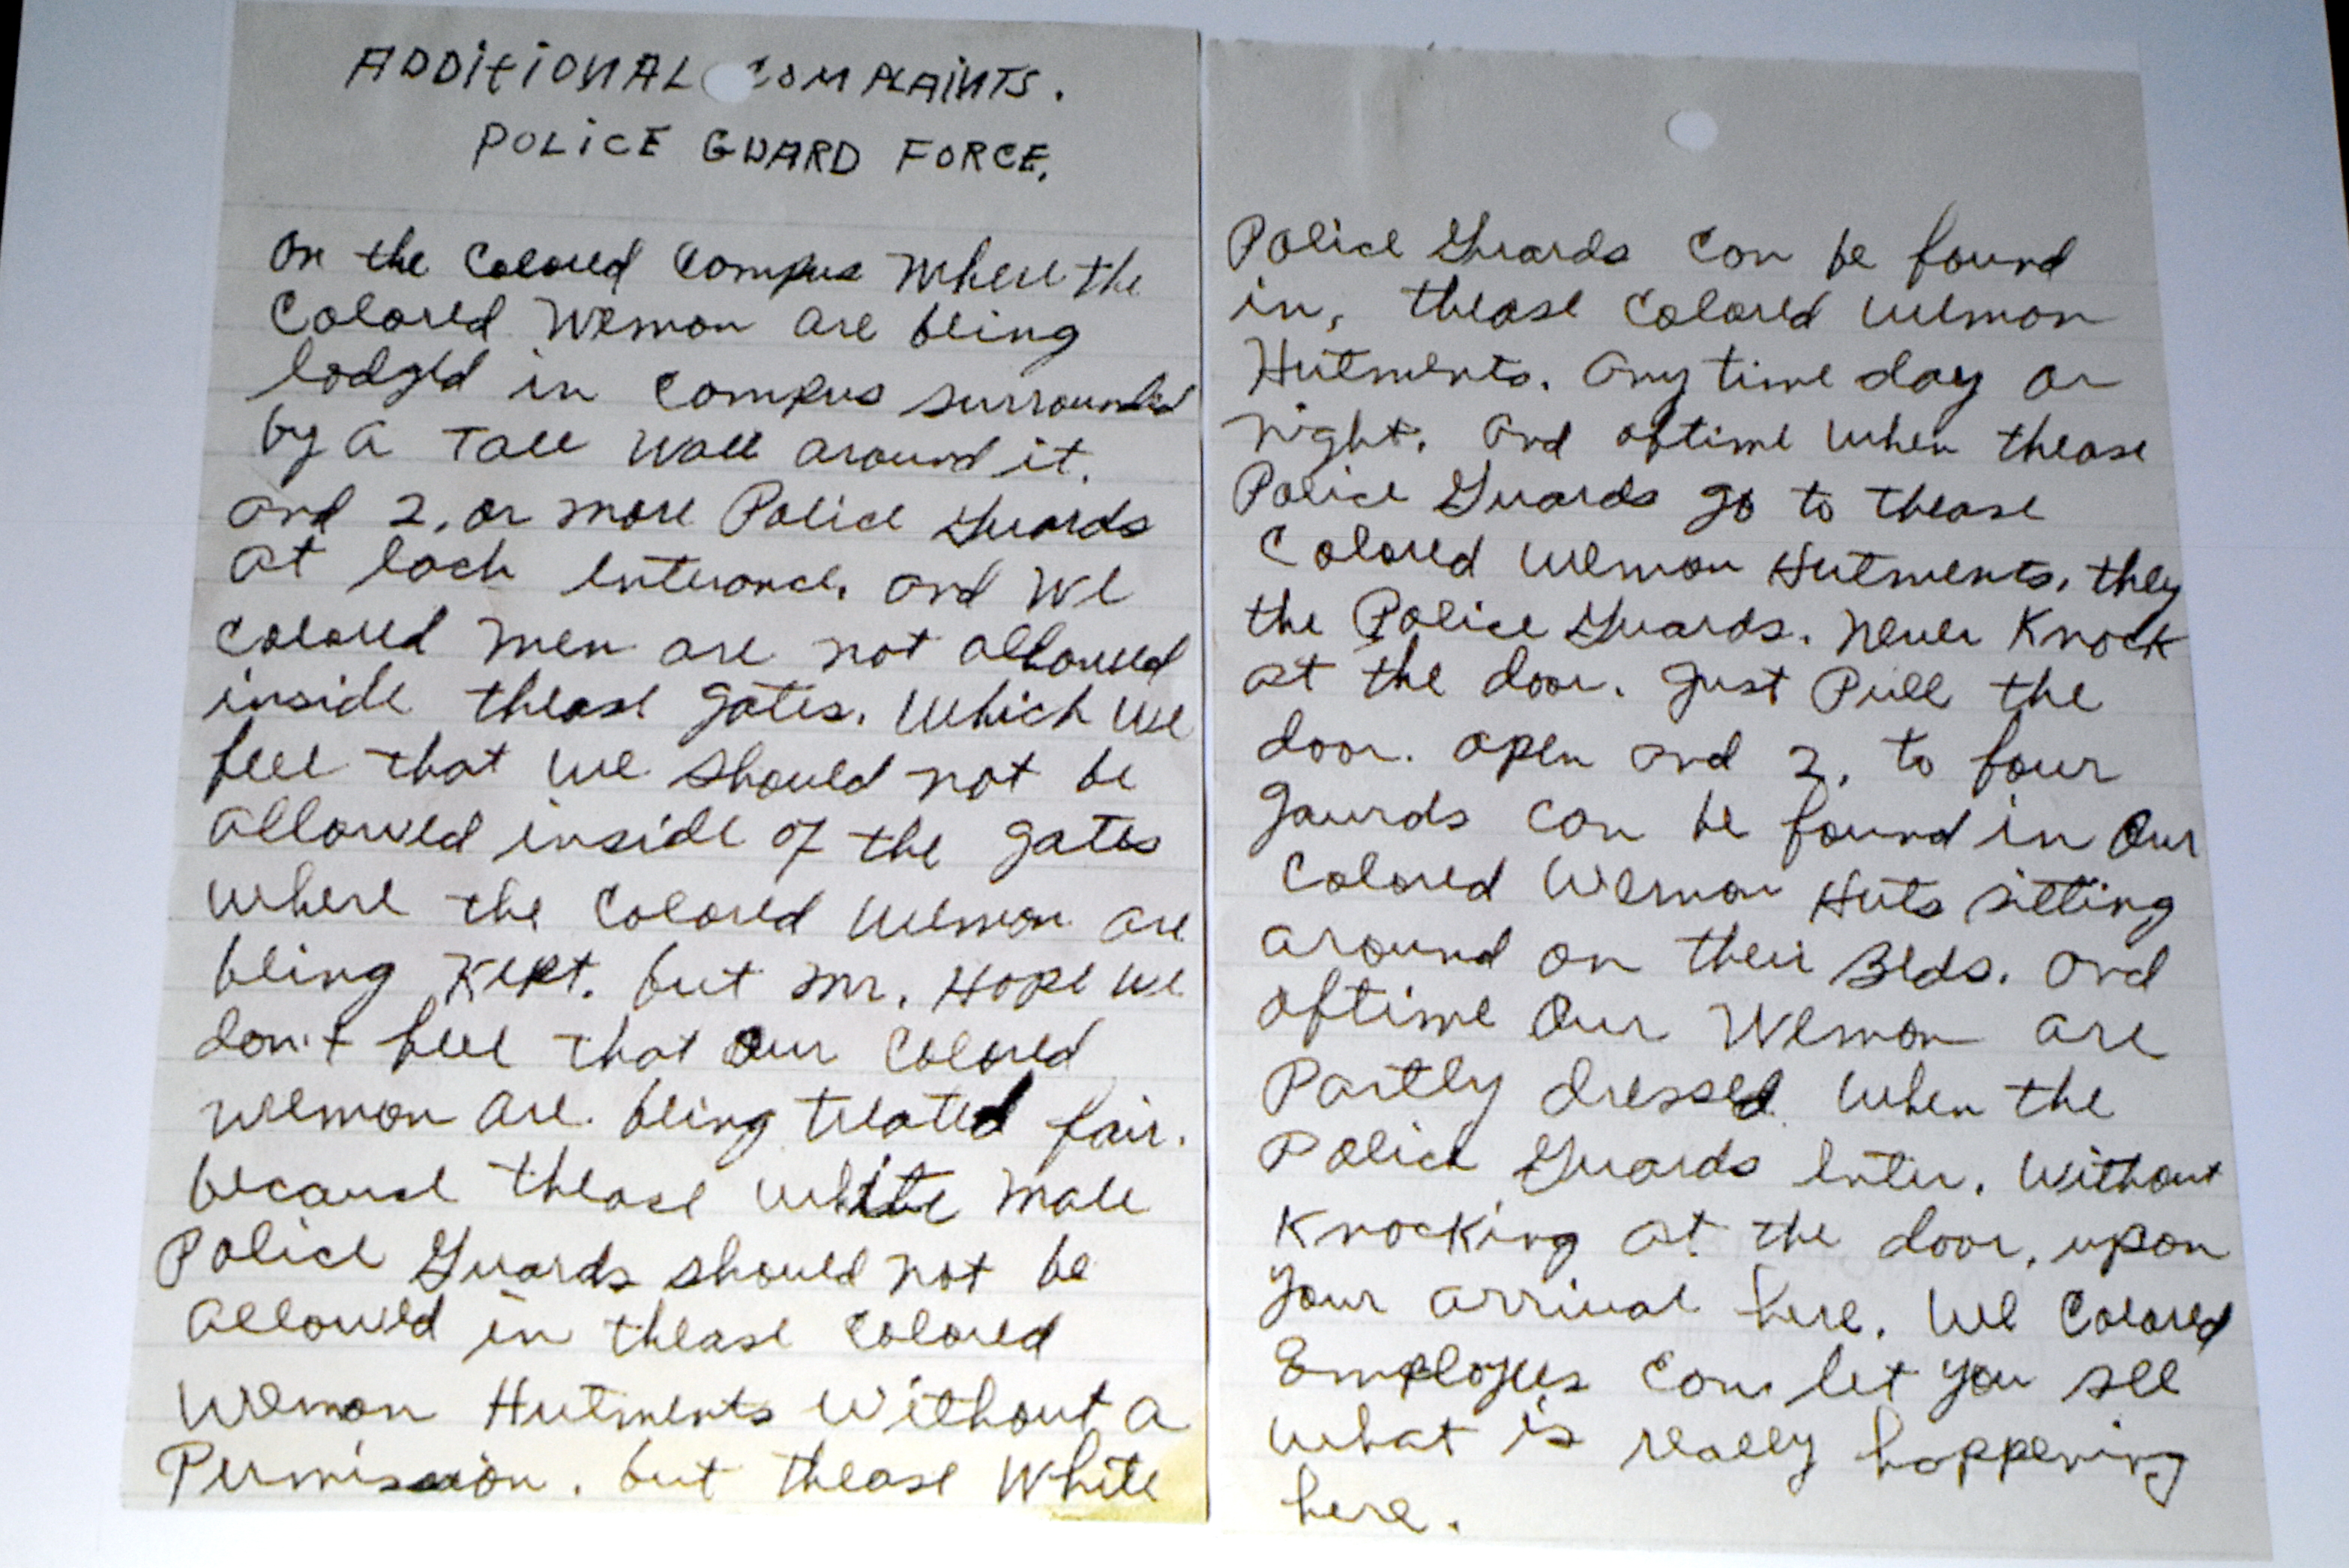 ADDITIONAL COMPLAINTS.
POLICE GUARD FORCE.
On the Colored Campus Where the
Colored Wemon are being
lodged in Campus surrounded
by a Tall Wall around it.
and 2, or more Police Guards
at each enterance. and We
Colored men are not allowed
inside thease gates. Which We
feel that we should not be
allowed inside of the gates
where the Colored Wemon are
being Kept. but Mr. Hope we
don't feel that Our Colored
Wemon are being treated fair.
because thease white male
Police Guards should not be
allowed in thease Colored
Wemon Hutments Without a
Permission. but thease White
Police Guards can be found
in, thease Colored Wemon
Hutments. Any time day or
night. And oftime When thease
Police Guards go to thease
Colored Wemon Hutments. they
the Police Guards. Never Knock
at the door. Just Pull the
door. open and 2, to four
Gaurds can be found in Our
Colored Wemon Huts sitting
around on their Beds. and
oftime Our Wemon are
Partly dressed When the
Police Guards enter. Without
Knocking at the door, upon
your arrival here. We Colored
Employees can let you see
what is really happening
here.